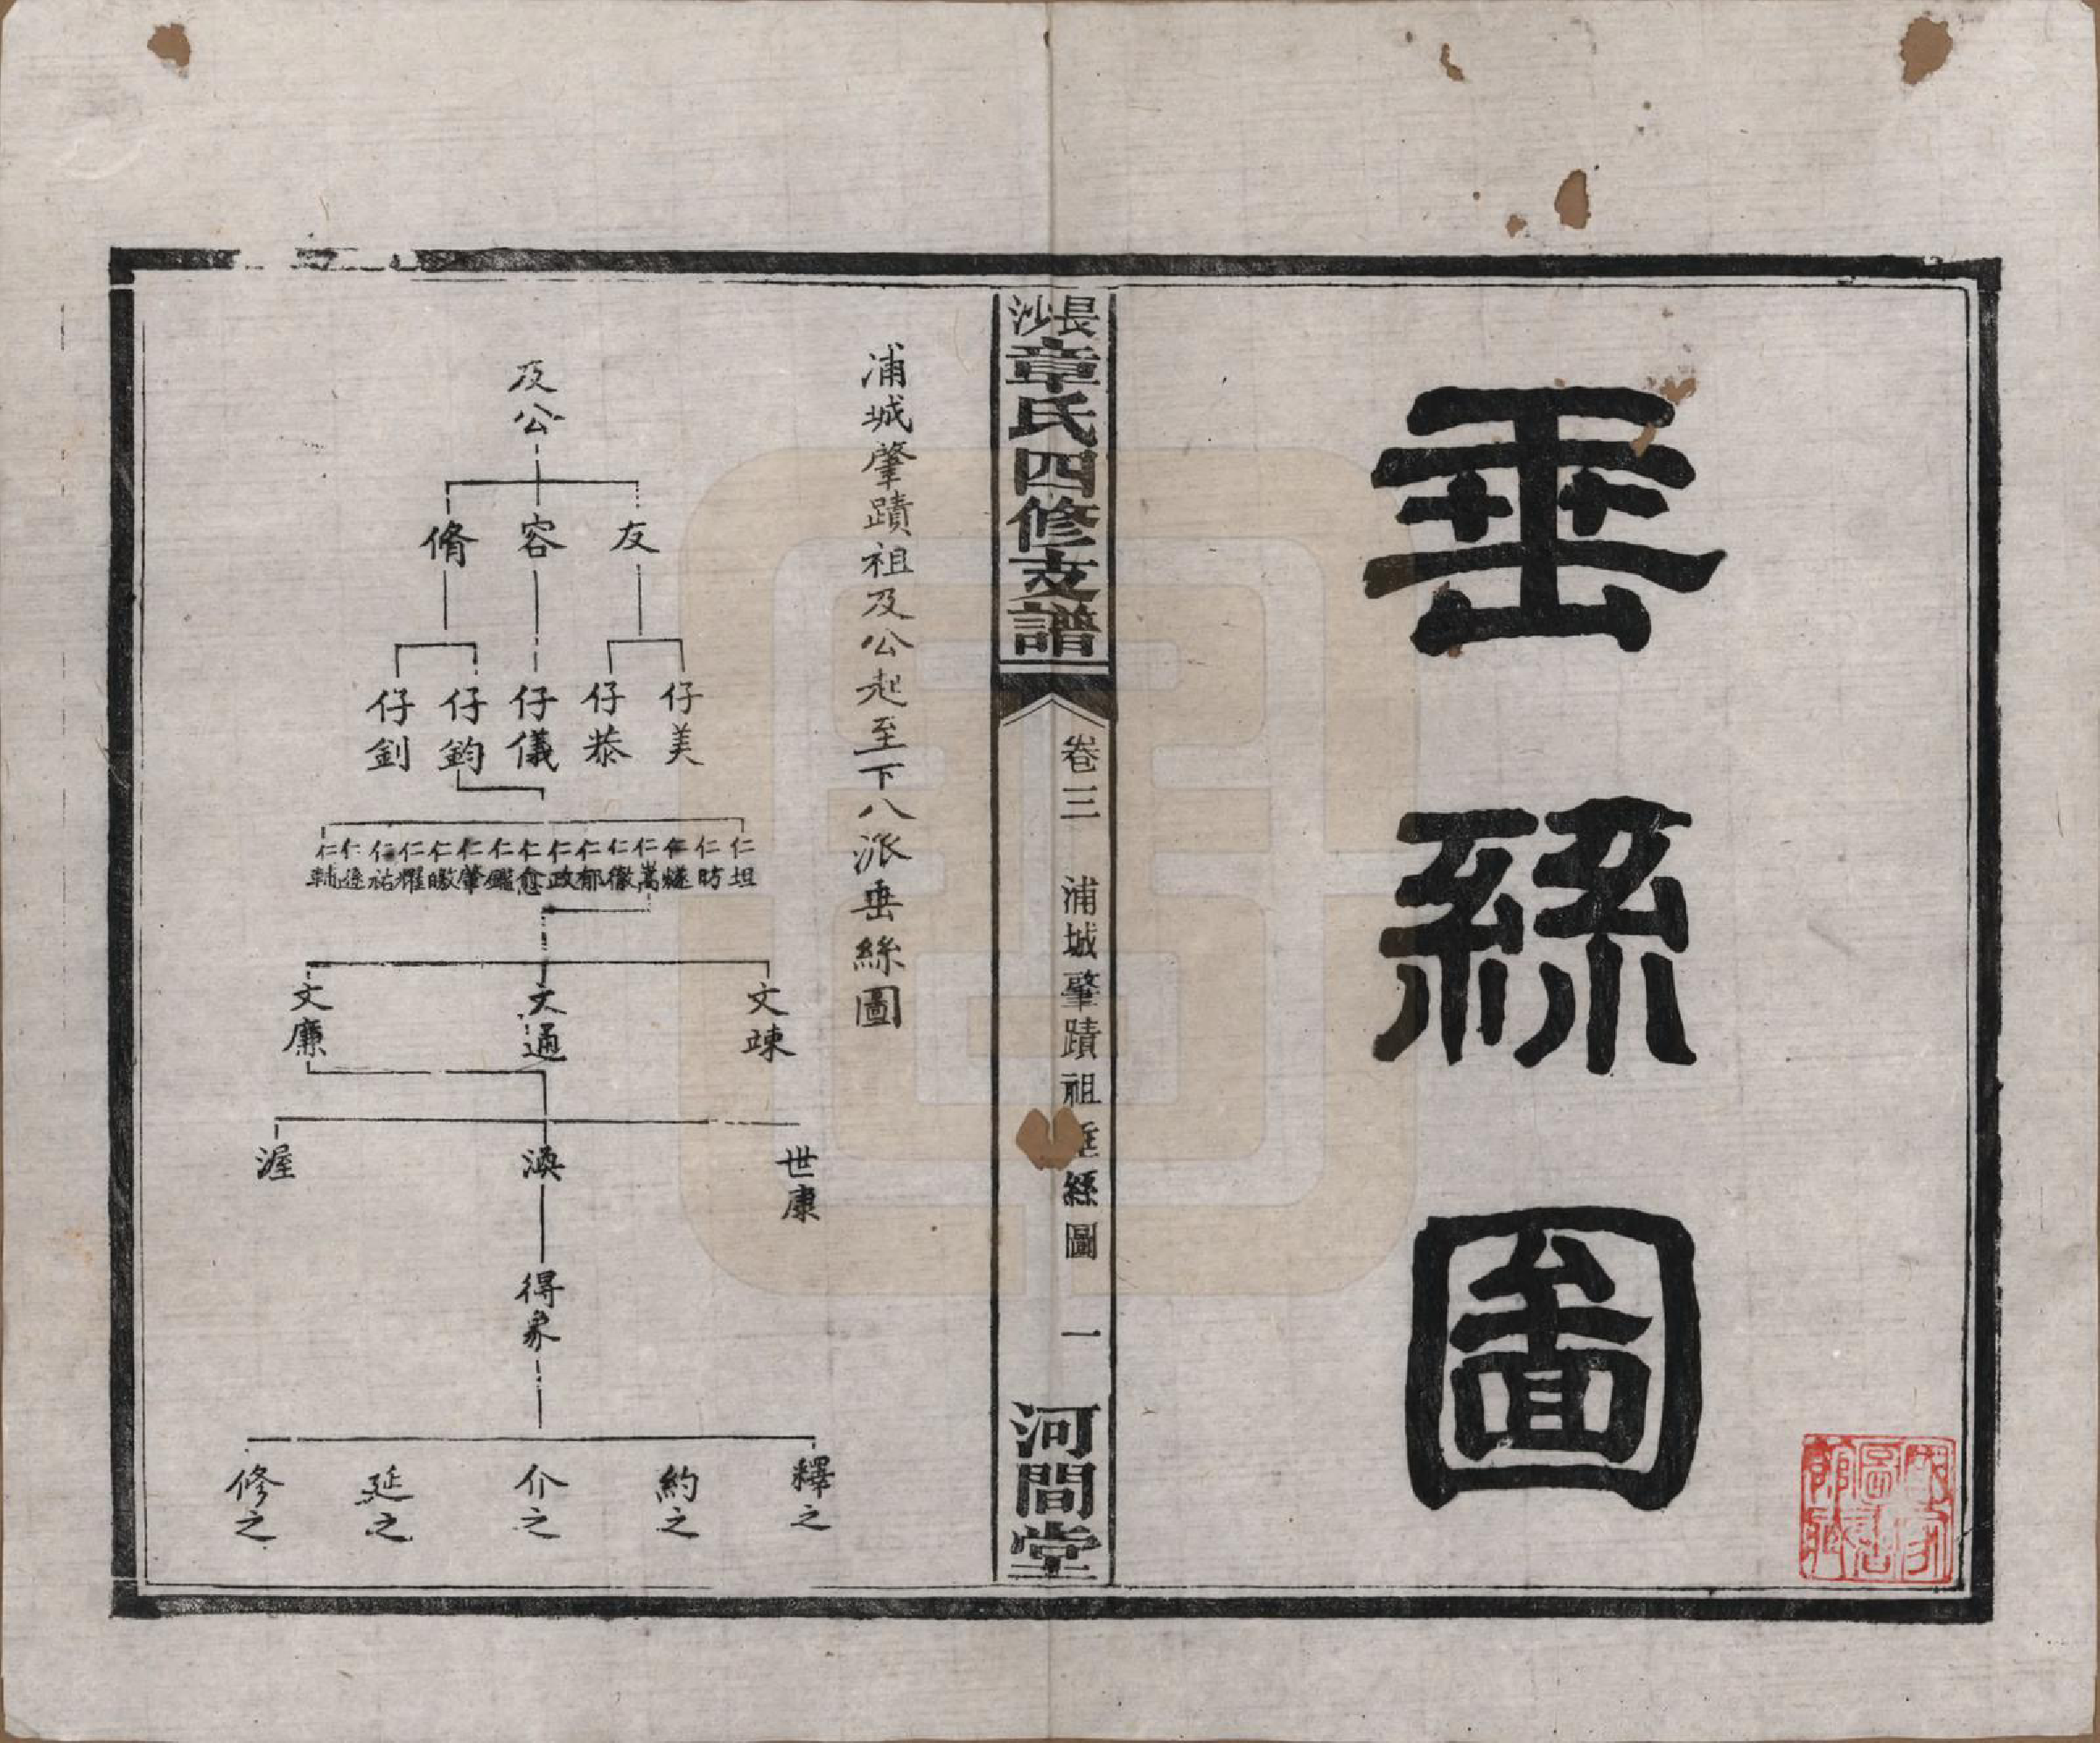 垂絲圖
長沙章氏四修支譜
卷三 浦城肇蹟祖垂絲圖 一
河間堂
浦城肇蹟祖及公起至下八派垂絲圖
及公
友 容 脩
仔美 仔恭 仔儀 仔鈞 仔釗
仁坦 仁昉 仁燧 仁嵩 仁徹 仁郁 仁政 仁愈 仁鑑 仁肇 仁皦 仁耀 仁祐 仁遜 仁輔
文竦 文通 文廉
世康 渙 渥
得象
釋之 約之 介之 延之 修之